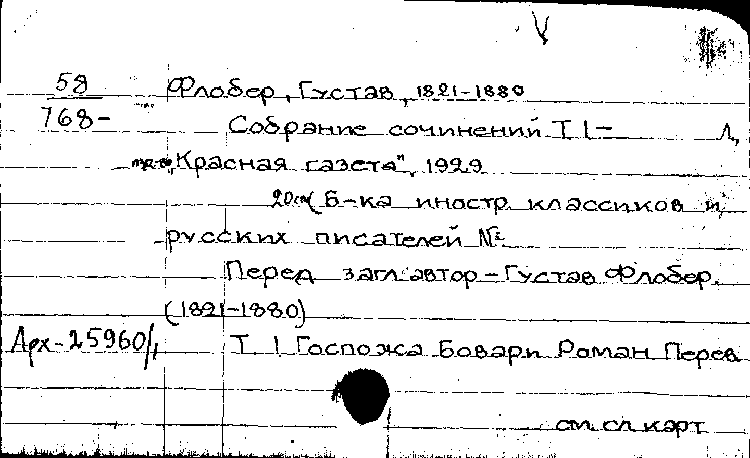 V
58 Флобер, Густав, 1821-1880
768- Собрание сочинений Т 1- Л,
изд-во "Красная газета", 1929
20см (Б-ка иностр. классиков и
русских писателей №
Перед загл. автор - Густав Флобер.
(1821-1880)
Арх-25960/1 Т. 1 Госпожа Бовари Роман Перев
см. сл карт